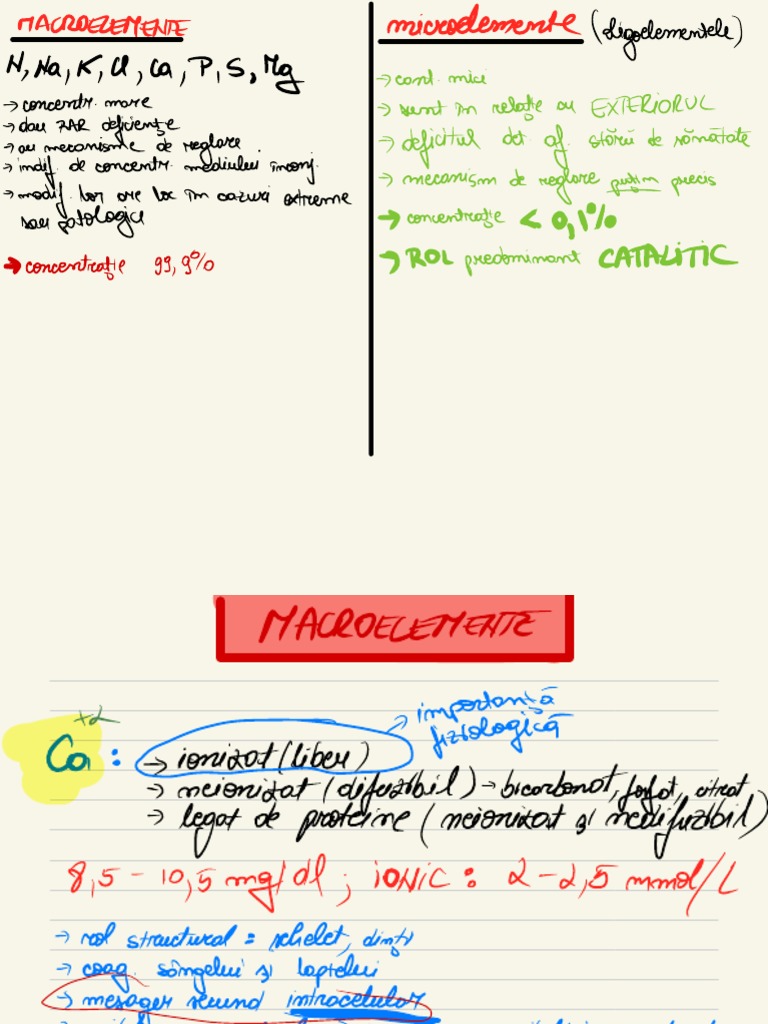 MACROELEMENTE
N, Na, K, Cl, Ca, P, S, Mg
→ concentr. mare
→ dau RAR deficiențe
→ au mecanisme de reglare
→ indif. de concentr. mediului înconj.
→ modif. lor are loc în cazuri extreme
sau patologice
→ concentrație 99,9%
microelemente (oligoelementele)
→ cant. mici
→ sunt în relație cu EXTERIORUL
→ deficitul det af. stării de sănătate
→ mecanism de reglare puțin precis
→ concentrație < 0,1%
→ ROL predominant CATALITIC
MACROELEMENTE
Ca +2 : → ionizat (liber) → importanță
fiziologică
→ neionizat (difuzibil) → bicarbonat, fosfat, citrat
→ legat de proteine (neionizat și nedifuzibil)
8,5 - 10,5 mg/dl ; IONIC : 2 - 2,5 mmol/L
→ rol structural = schelet, dinți
→ coag. sângelui și laptelui
→ mesager secund intracelular